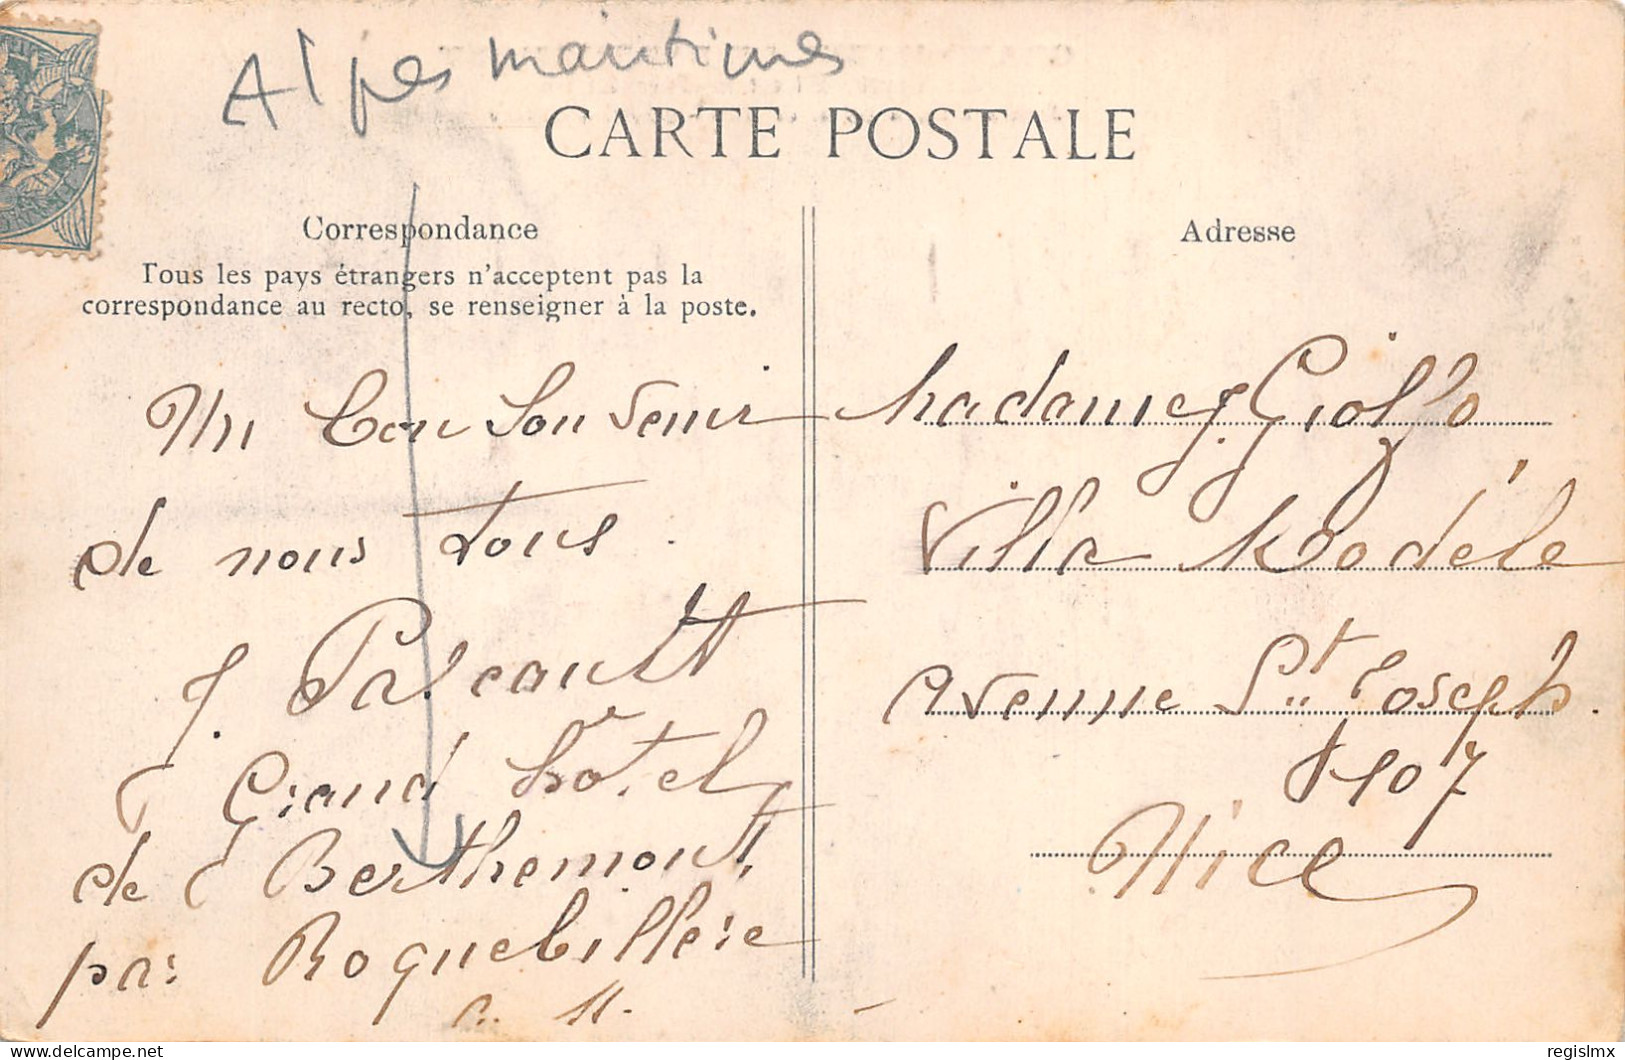 Alpes maritimes
CARTE POSTALE
Correspondance
Tous les pays étrangers n'acceptent pas la
correspondance au recto, se renseigner à la poste.
Un bon Souvenir
de nous tous.
J.
Grand hôtel
de Berthemont,
par Roquebillère
A. M.
Adresse
Madame J. Giolfo
Villa Modèle
Avenue St. Joseph.
Nice
delcampe.net
regislmx